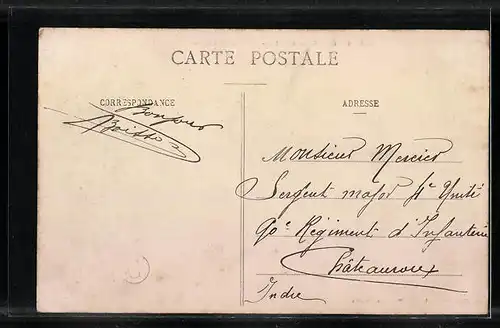 CARTE POSTALE
CORRESPONDANCE
Bonjour
ADRESSE
Monsieur Mercier
Sergent major 4e Unité
90e Régiment d'Infanterie
Châteauroux
Indre